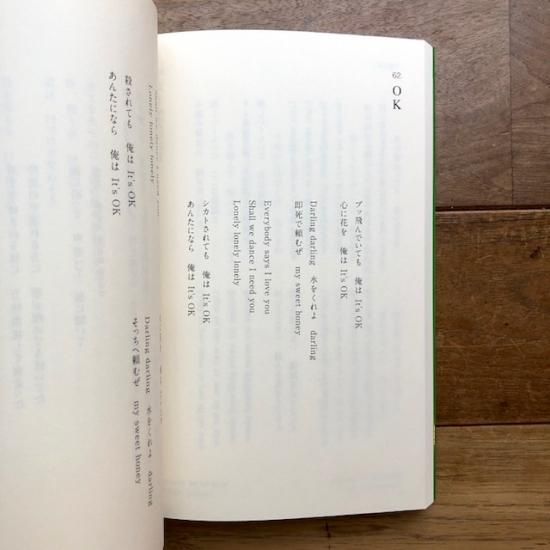 62.
OK
ブッ飛んでいても　俺は It's OK
心に花を　俺は It's OK
Darling darling　水をくれよ　darling
即死で頼むぜ　my sweet honey
Everybody says I love you
Shall we dance I need you
Lonely lonely lonely
シカトされても　俺は It's OK
あんたになら　俺は It's OK
Shall we dance I need you
Lonely lonely lonely
殺されても　俺は It's OK
あんたになら　俺は It's OK
Darling darling　水をくれよ　darling
そっちへ頼むぜ　my sweet honey